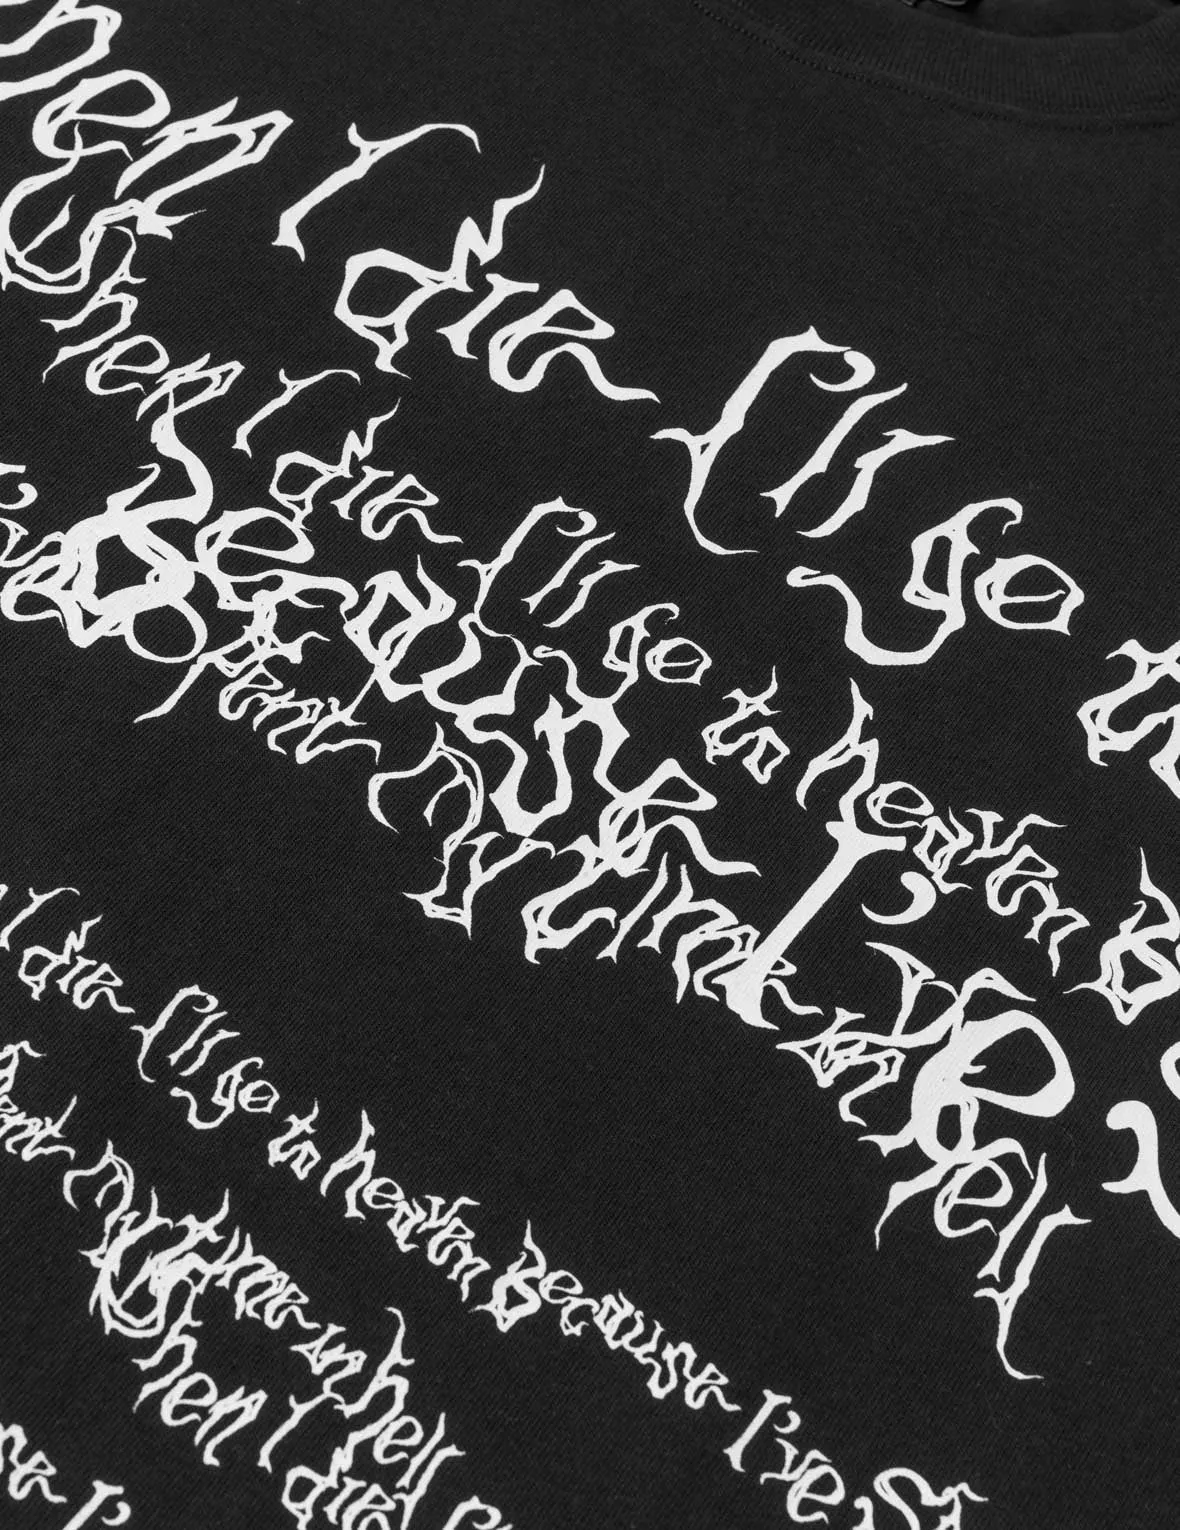 hen I die I'll go to
When I die I'll go to heaven B
Because I've
Spent my time in hell
I die I'll go to heaven Because I've S
Spent my time in hell
When I died I
se I'